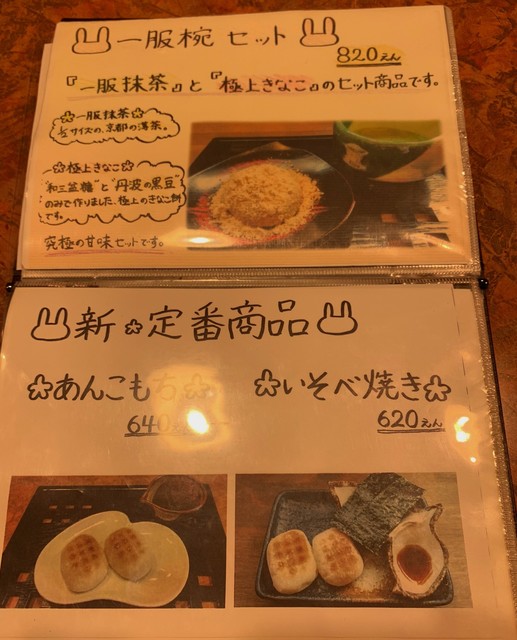 一服椀 セット
820えん
『一服抹茶』と『極上きなこ』のセット商品です。
一服抹茶
½サイズの、京都の薄茶。
極上きなこ
"和三盆糖"と"丹波の黒豆"
のみで作りました、極上のきなこ餅
です。
究極の甘味セットです。
新定番商品
あんこもち
640
いそべ焼き
620えん